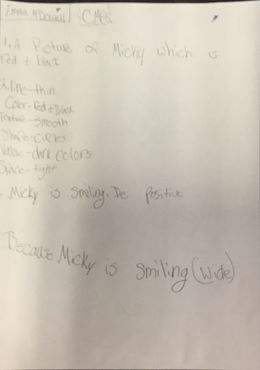 Emma McDowell CMCS
1. A Picture of Micky which is
Red + black
2. line-thin
Color-Red + Black
Texture-smooth
Shape-circles
Value-dark colors
Space-tight
Micky is smiling. Its positive
Because Micky is smiling (wide)